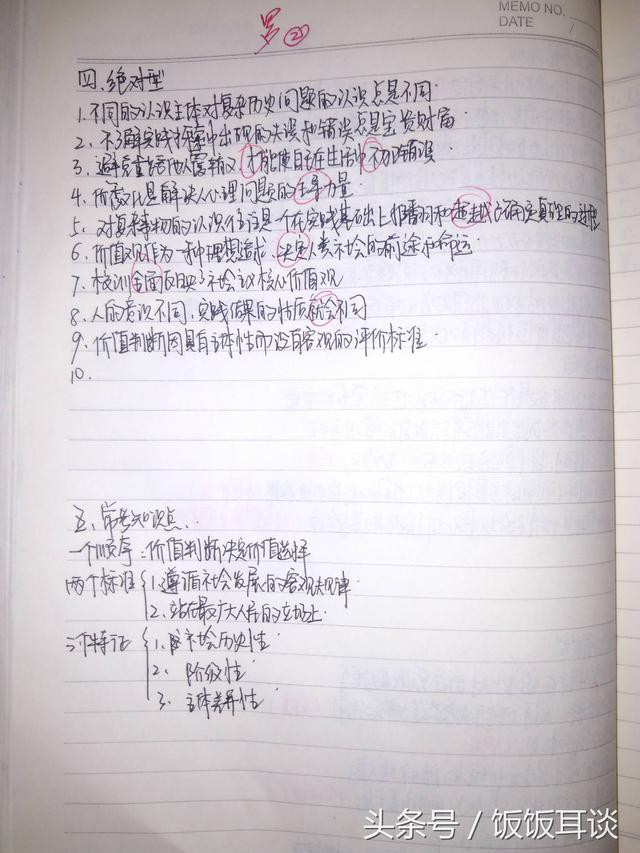 MEMO NO.
DATE /
罗②
四、绝对型
1. 不同的认识主体对复杂历史问题的认识总是不同
2. 不了解实践探索中出现的失误和错误总是宝贵财富
3. 才能使自己在生活中不犯错误
4. 是解决人心理问题的主导力量
5. 对复杂事物的认识往往是一个在实践基础上相互和超越 确定真理的过程
6. 价值观作为一种理想追求、决定人类社会的前途和命运
7. 校训全面反映了社会主义核心价值观
8. 人的意识不同,实践结果的性质就会不同
9. 价值判断因具有主体性而没有客观的评价标准
10.
五、常考知识点
一个顺序:价值判断决定价值选择
两个标准 1. 遵循社会发展的客观规律
2. 站在最广大人民的立场上
三个特征 1. 社会历史性
2. 阶级性
3. 主体差异性
头条号 / 饭饭耳谈